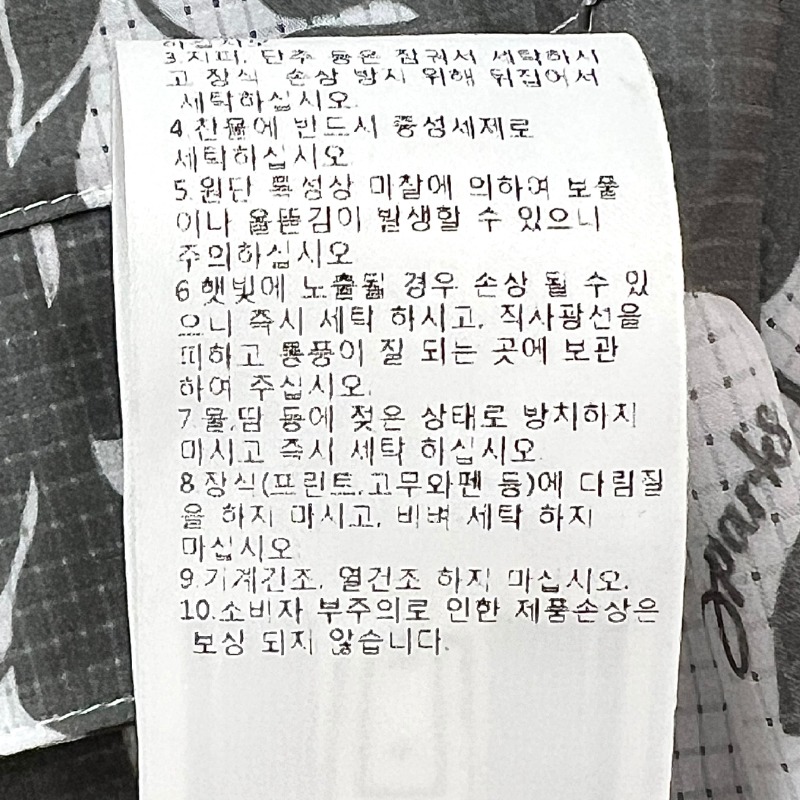 3.지퍼, 단추 등은 잠궈서 세탁하시
고 장식 손상 방지 위해 뒤집어서
세탁하십시오.
4.찬물에 반드시 중성세제로
세탁하십시오
5.원단 특성상 마찰에 의하여 보풀
이나 올뜯김이 발생할 수 있으니
주의하십시오
6.햇빛에 노출될 경우 손상 될 수 있
으니 즉시 세탁 하시고, 직사광선을
피하고 통풍이 잘 되는 곳에 보관
하여 주십시오.
7.물,땀 등에 젖은 상태로 방치하지
마시고 즉시 세탁 하십시오
8.장식(프린트,고무와펜 등)에 다림질
을 하지 마시고, 비벼 세탁 하지
마십시오
9.기계건조, 열건조 하지 마십시오.
10.소비자 부주의로 인한 제품손상은
보상 되지 않습니다.